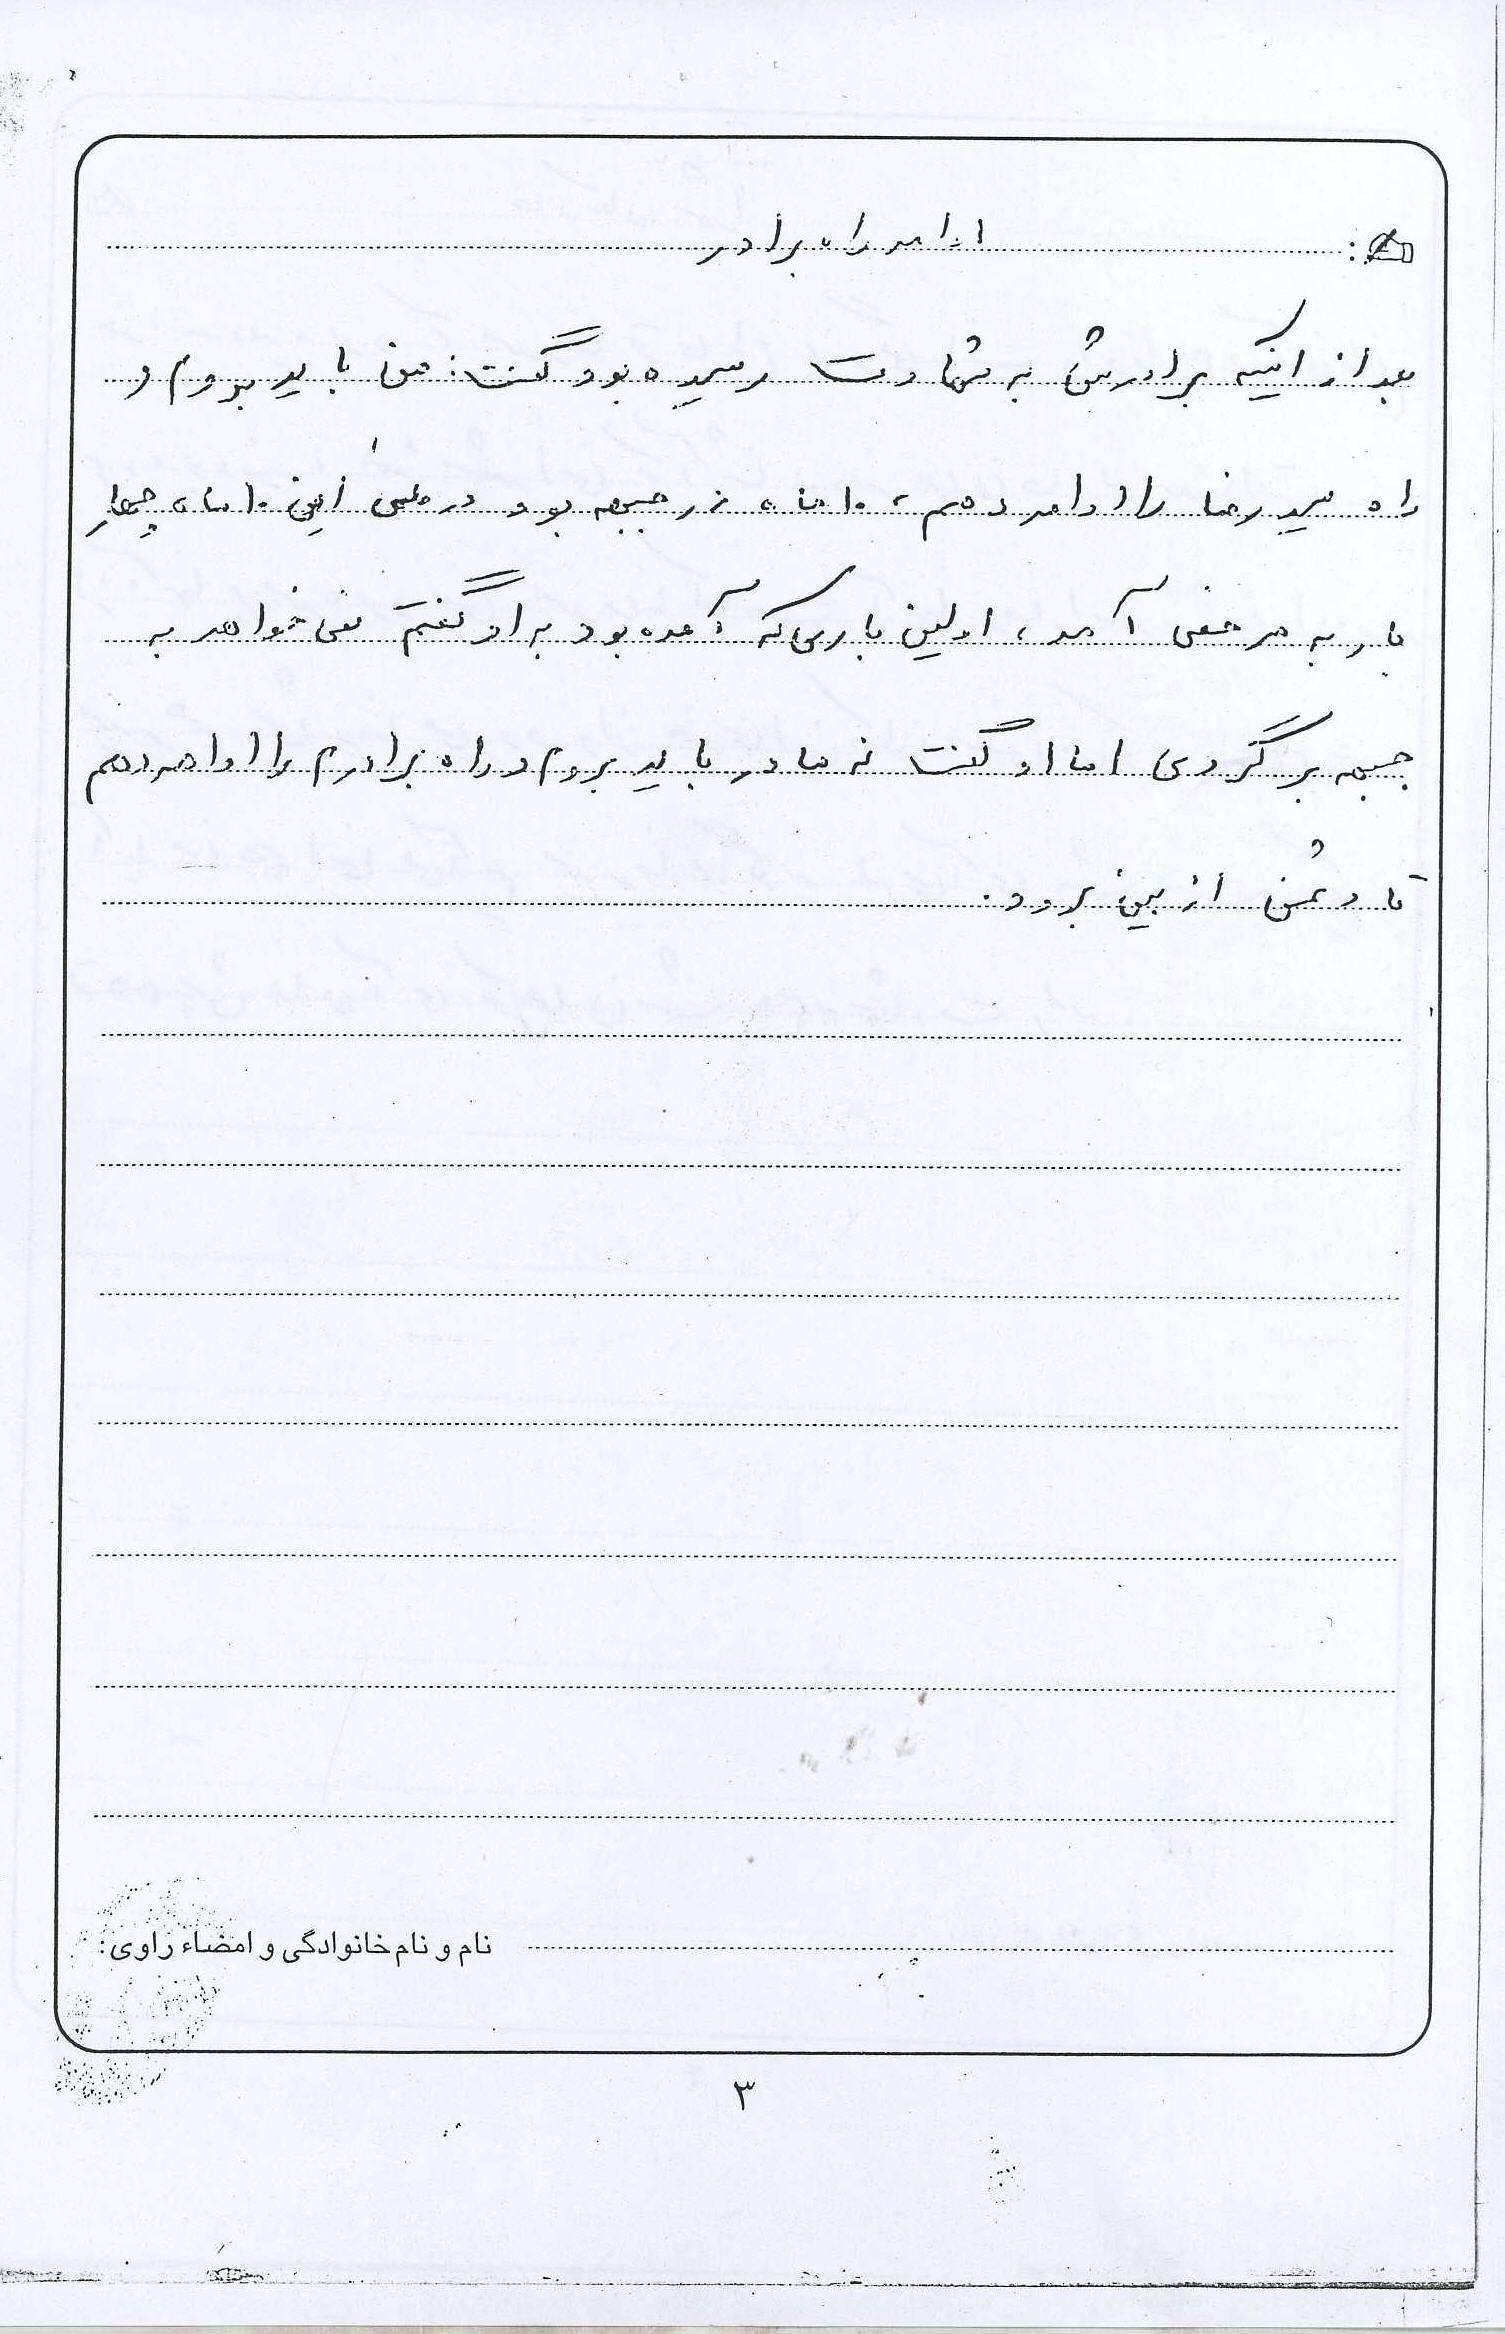 ادامه راه برادر
بعد از اینکه برادرش به شهادت رسیده بود گفت: من باید بروم و
راه سید رضا را ادامه دهم، ۱۰ ماه در جبهه بود در طی این ۱۰ ماه چهار
بار به مرخصی آمد، اولین باری که آمده بود به او گفتم نمی خواهد به
جبهه برگردی اما او گفت نه مادر باید بروم و راه برادرم را ادامه دهم
تا دشمن از بین برود.
نام و نام خانوادگی و امضاء راوی:
۳